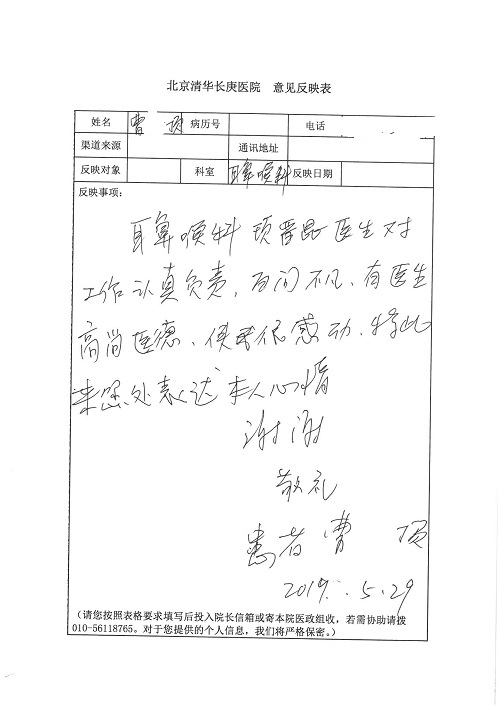 北京清华长庚医院 意见反映表
姓名 曹 病历号 电话
渠道来源 通讯地址
反映对象 科室 耳鼻喉科 反映日期
反映事项：
耳鼻喉科 项晋昆医生对
工作认真负责，百问不凡，有医生
高尚医德，使我很感动，特此
来您处表达本人心情
谢谢
敬礼
患者 曹
2019.5.29
（请您按照表格要求填写后投入院长信箱或寄本院医政组收，若需协助请拨
010-56118765。对于您提供的个人信息，我们将严格保密。）